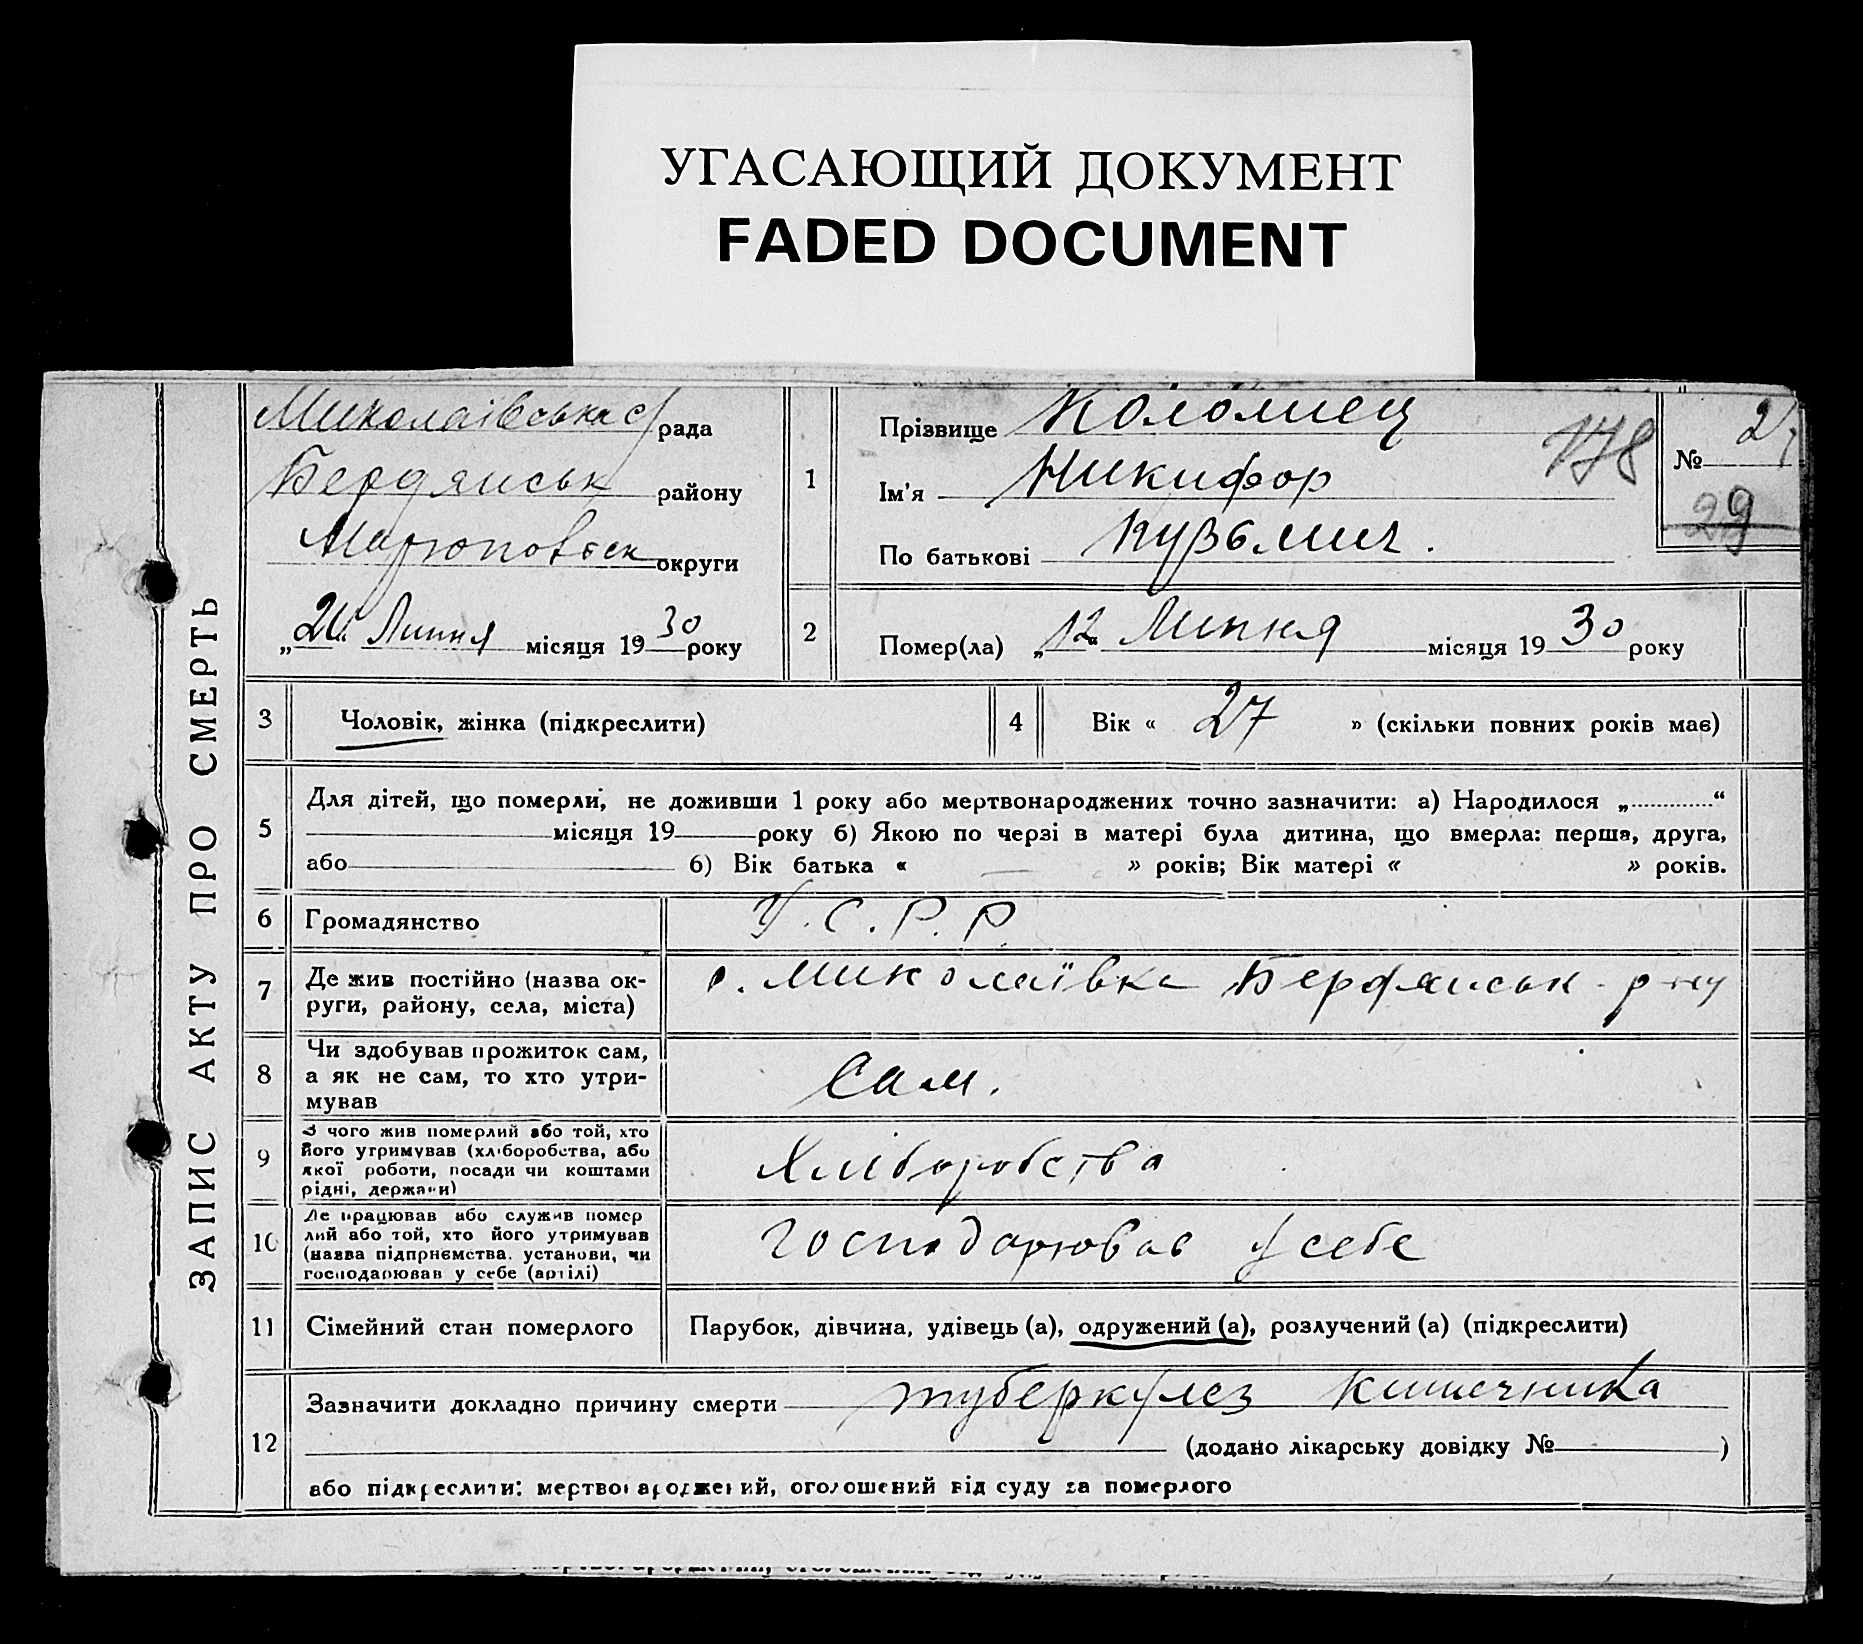 УГАСАЮЩИЙ ДОКУМЕНТ
FADED DOCUMENT
ЗАПИС АКТУ ПРО СМЕРТЬ
Миколаївська с/рада
Бердянськ району
округи
Липня місяця 1930 року
1
Прізвище Коломиец
Ім'я Никифор
По батькові Кузьмич.
178
№
29
2
Помер(ла) „12“ Липня місяця 1930 року
3
Чоловік, жінка (підкреслити)
4
Вік « 27 » (скільки повних років має)
5
Для дітей, що померли, не доживши 1 року або мертвонароджених точно зазначити: а) Народилося „ “
місяця 19 року б) Якою по черзі в матері була дитина, що вмерла: перша, друга,
або б) Вік батька « » років; Вік матері « » років.
6
Громадянство
У.С.Р.Р.
7
Де жив постійно (назва ок-
руги, району, села, міста)
с. Миколаївка Бердянськ. р-ну
8
Чи здобував прожиток сам,
а як не сам, то хто утри-
мував
Сам.
9
З чого жив померлий або той, хто
його утримував (хліборобства, або
якої роботи, посади чи коштами
рідні, держави)
Хліборобства
10
Де працював або служив помер
лий або той, хто його утримував
(назва підприємства, установи, чи
господарював у себе (артілі)
Господарював у себе
11
Сімейний стан померлого
Парубок, дівчина, удівець (а), одружений (а), розлучений (а) (підкреслити)
12
Зазначити докладно причину смерти туберкулез кишечника
(додано лікарську довідку № )
або підкреслити: мертвонароджений, оголошений від суду за померлого